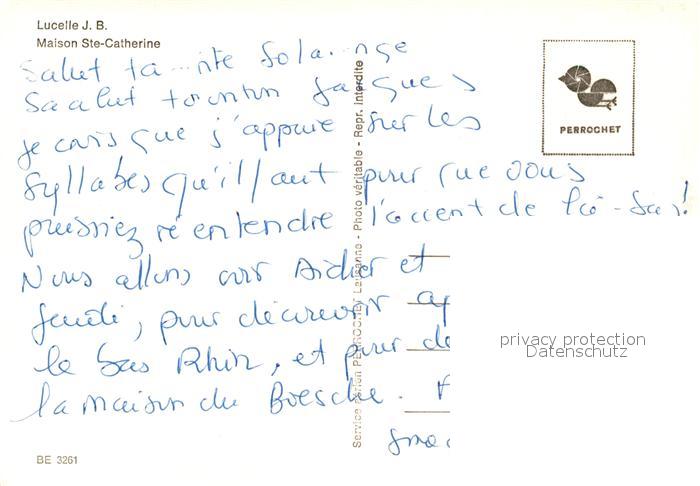 Lucelle J. B.
Maison Ste-Catherine
Salut ta...nte Sola...nge
Saalut tonton Jacques
je crois que j'appuie sur les
syllabes qu'il faut pour que vous
puissiez réentendre l'accent de là-bas!
Nous allons voir Didier et
jeudi, pour découvrir
le Bas Rhin, et pour de
la maison du
Service aérien PERROCHET Lausanne - Photo véritable - Repr. interdite
PERROCHET
privacy protection
Datenschutz
BE 3261